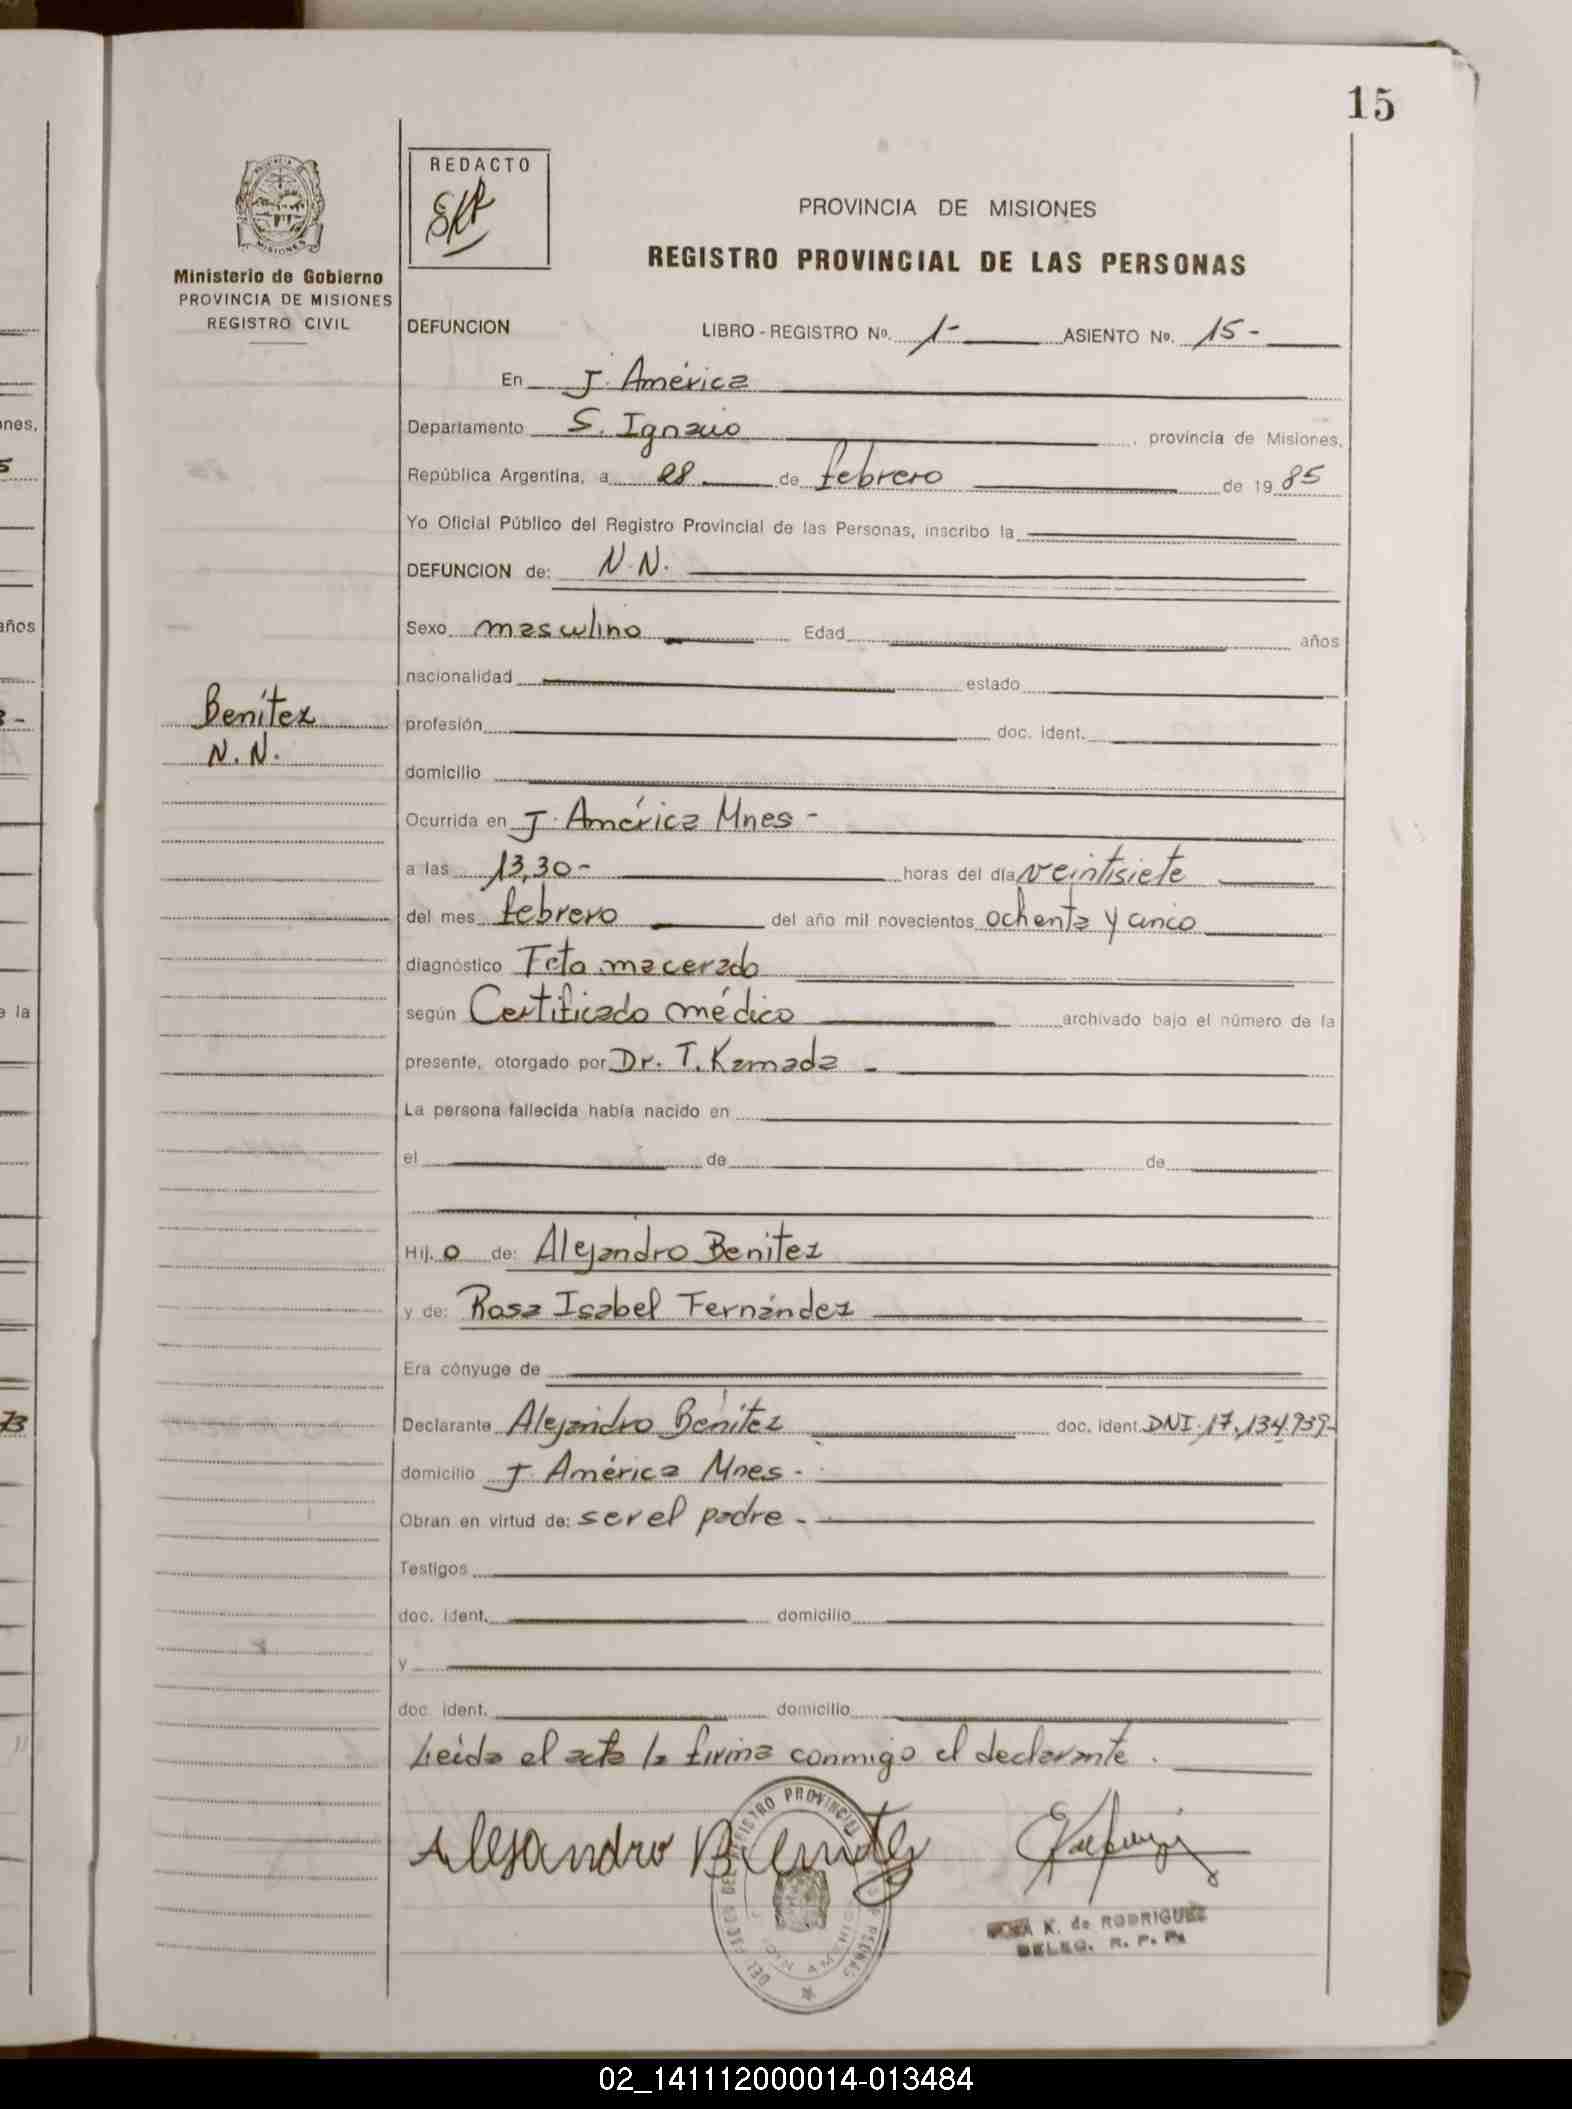 15
REDACTO
PROVINCIA DE MISIONES
REGISTRO PROVINCIAL DE LAS PERSONAS
Ministerio de Gobierno
PROVINCIA DE MISIONES
REGISTRO CIVIL
DEFUNCION LIBRO - REGISTRO Nº. 1- ASIENTO Nº. 15-
En J. América
Departamento S. Ignacio, provincia de Misiones,
República Argentina, a 28 de febrero de 1985
Yo Oficial Público del Registro Provincial de las Personas, inscribo la
DEFUNCION de: N.N.
Sexo masculino Edad años
nacionalidad estado
Benítez
N.N.
profesión doc. ident.
domicilio
Ocurrida en J. América Mnes -
a las 13,30- horas del día veintisiete
del mes febrero del año mil novecientos ochenta y cinco
diagnóstico Feto macerado
según Certificado médico archivado bajo el número de la
presente, otorgado por Dr. T. Kamada -
La persona fallecida había nacido en
el de de
Hij o de: Alejandro Benitez
y de: Rosa Isabel Fernández
Era cónyuge de
Declarante Alejandro Benítez doc. ident. DNI. 17.134.939-
domicilio J América Mnes -
Obran en virtud de: ser el padre -
Testigos
doc. ident. domicilio
y
doc. ident. domicilio
Leída el acta la firma conmigo el declarante.
Alejandro Benitez
K. de RODRIGUEZ
DELEG. R. P. P.
02_141112000014-013484